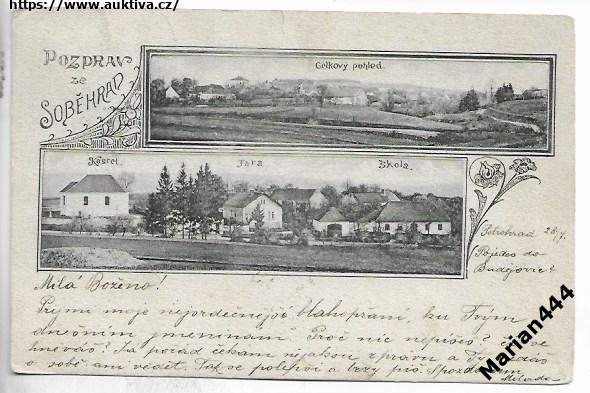 https://www.auktiva.cz/
POZPRAV
ze
SOBĚHRAD
Celkový pohled.
Kostel.
Fara
Škola.
Petrohrad 28/7.
Pojedeš do
Budějovic?
Milá Boženo!
Přijmi moje nejsrdečnější blahopraní, ku Tvým
dnešním jmeninam. Proč nic nepíšeš? se
hněváš? Já pořád čekam nějakou zprávu a Ty nedáš
o sobě ani vědět. Tak se polepši a brzy piš. S pozdravem
Milada
Marian444